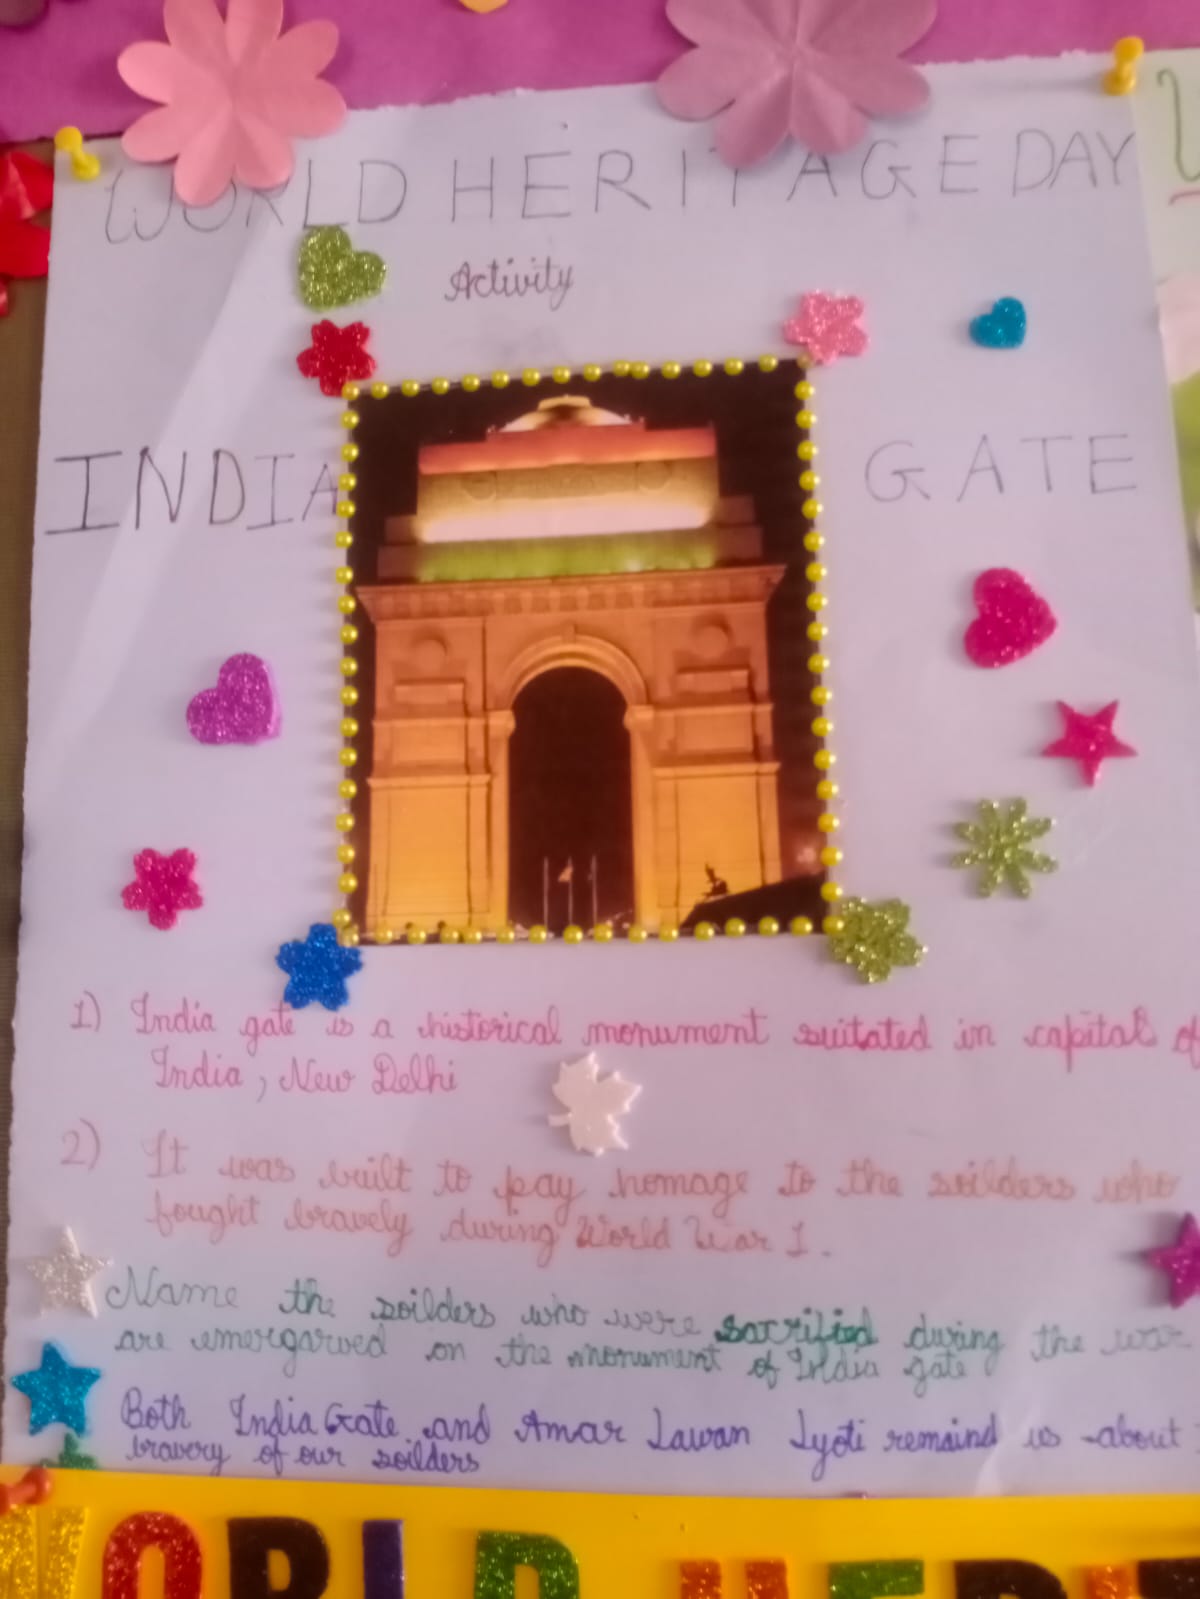 WORLD HERITAGE DAY
Activity
INDIA GATE
1) India gate is a historical monument suitated in capital of
India, New Delhi
2) It was built to pay homage to the soilders who
fought bravely during World War 1.
Name the soilders who were sacrified during the war
are emergarved on the monument of India gate
Both India Gate and Amar Jawan Jyoti remaind us about
bravery of our soilders
WORLD HERIT